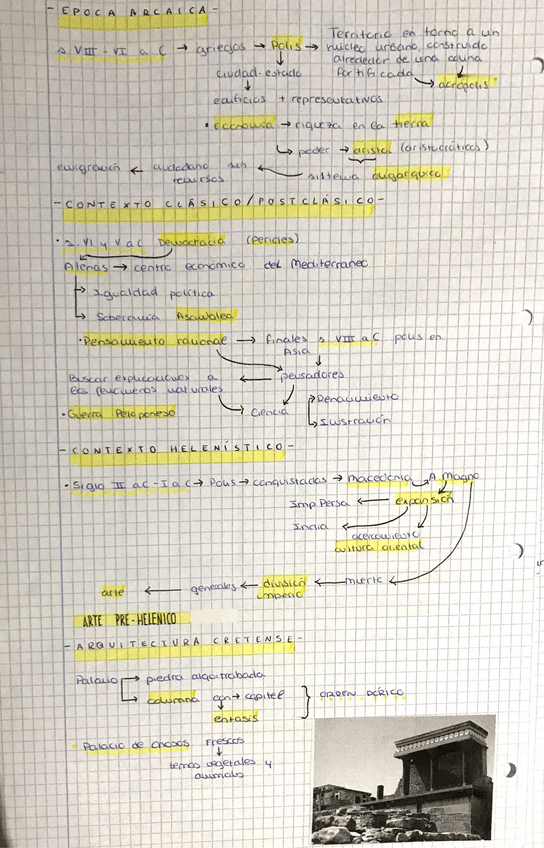 - EPOCA ARCAICA -
s. VIII - VI a C → griegos → Polis → Territorio en torno a un
núcleo urbano, construido
alrededor de una colina
fortificada → "acrópolis"
ciudad-estado
edificios + representativos
• Economía → riqueza en la tierra
poder → aristoi (aristocráticos)
emigración ← ciudadano sin ← sistema oligarquico
recursos
- CONTEXTO CLÁSICO/POSTCLÁSICO -
• s. VI y V a C Democracia (Pericles)
Atenas → centro económico del Mediterraneo
→ Igualdad política
→ Soberania Asamblea
• Pensamiento racional → finales s VIII a C polis en
Asia
Buscar explicaciones a ← pensadores
los fenómenos naturales
→ Ciencia → Renacimiento
→ Ilustración
• Guerra Peloponeso
- CONTEXTO HELENÍSTICO -
• Siglo II aC - I a C → Polis → conquistadas → macedonia → A. Magno
Imp Persa ← expansión
India
acercamiento
cultura oriental
arte ← generales ← división ← muerte
imperio
ARTE PRE-HELENICO
- ARQUITECTURA CRETENSE -
Palacio → piedra alquitrabada
→ columna con → capitel } ORDEN DORICO
entasis
• Palacio de Cnosos Frescos
temas vegetales y
animales